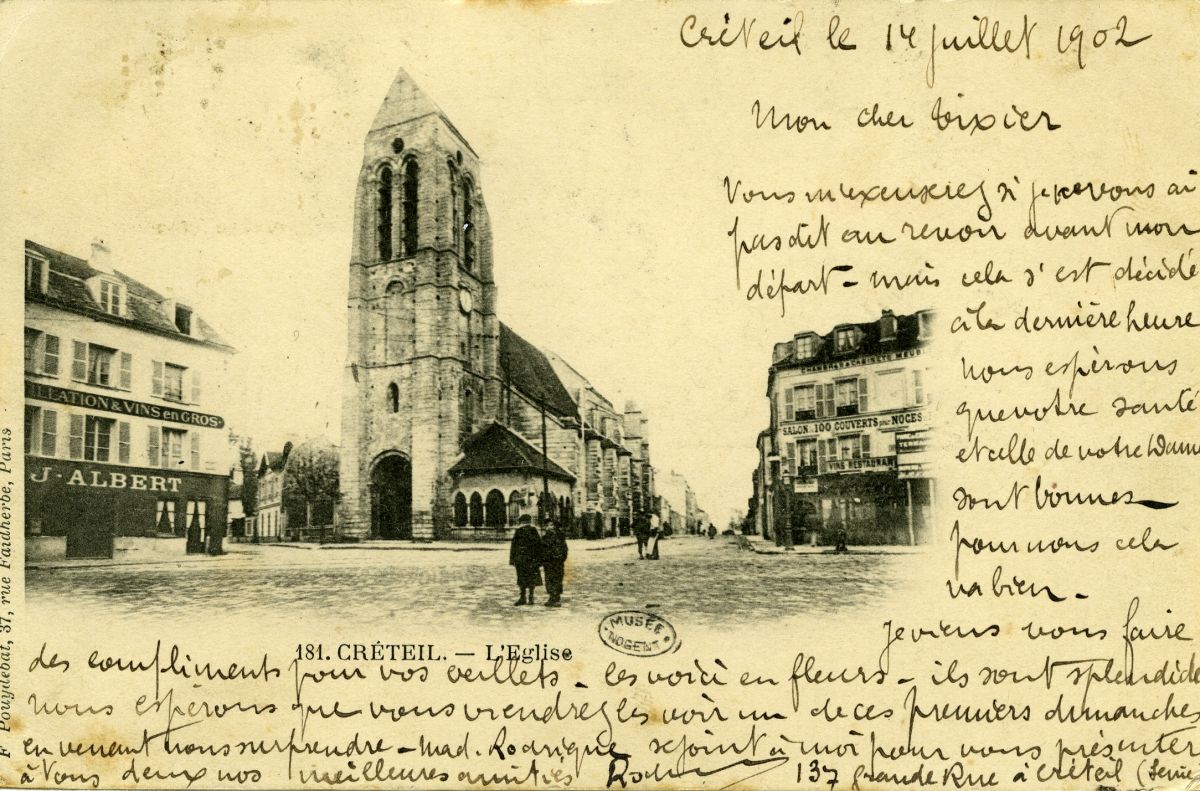 Créteil le 14 juillet 1902
Mon cher Tixier
Vous m'excuserez si je ne vous ai
pas dit au revoir avant mon
départ - mais cela s'est décidé
à la dernière heure
nous espérons
que votre santé
et celle de votre Dame
sont bonnes -
pour nous cela
va bien. -
Je viens vous faire
des compliments pour vos oeillets - les voici en fleurs - ils sont splendides
nous espérons que vous viendrez les voir un de ces premiers dimanches
en venant nous surprendre - Mad. Rodrigue se joint à moi pour vous présenter
à vous deux nos meilleures amitiés
137 grande Rue à Créteil (Seine
CHAMBRES & CABINETS MEUB
SALON DE 100 COUVERTS pour NOCES
VINS RESTAURANT
LLATION & VINS en GROS
J. ALBERT
181. CRÉTEIL. — L'Eglise
MUSÉE
NOGENT
F Pouydebat, 37, rue Faidherbe, Paris